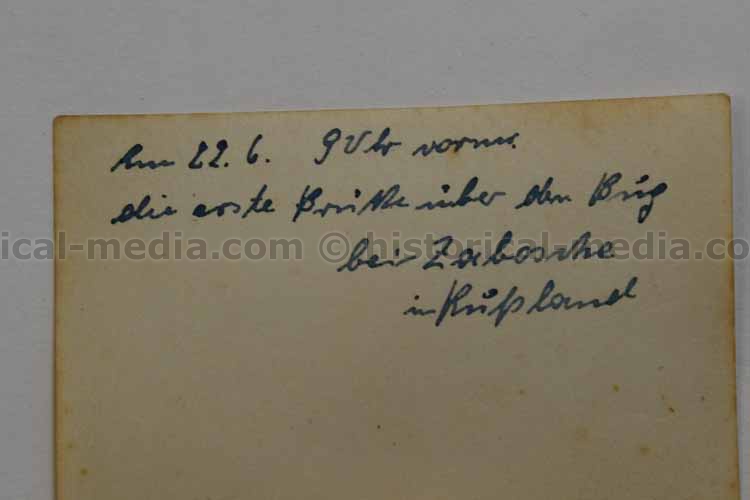 Am 22. 6. 9 Uhr vorm.
die erste Brücke über den Bug
ical-media.com © historical-media.com © h
bei Zabosche
in Rußland